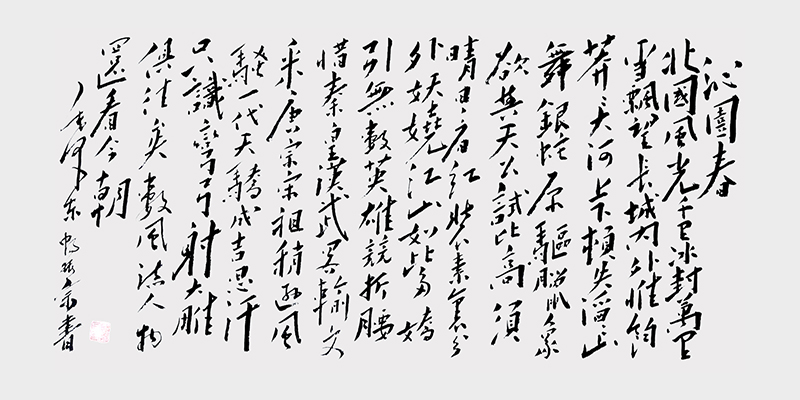 沁園春
北國風光千里冰封萬里
雪飄望長城內外惟餘
莽々大河上下頓失滔々山
舞銀蛇原驅臘象
欲與天公試比高須
晴日看紅裝素裹分
外妖嬈江山如此多嬌
引無數英雄競折腰
惜秦皇漢武畧輸文
采唐宗宋祖稍遜風
騷一代天驕成吉思汗
只識彎弓射大雕
俱往矣數風流人物
還看今朝
書